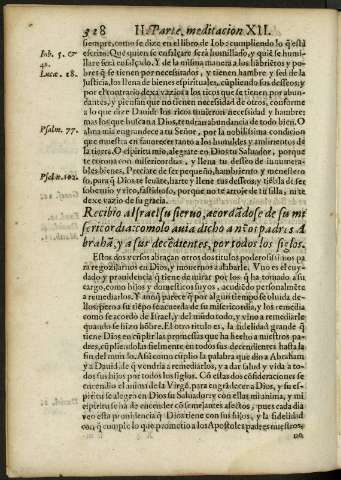 328 II. Parte, meditacion XII.
siempre, como se dize en el libro de Iob: cumpliendo lo q̃ està
Iob. 5. &
escrito: Que quien se ensalçare serà humillado, y quiẽ se humi-
41.
llare serà ensalçado. Y de la misma manera a los hãbriẽtos y po-
Lucæ. 18.
bres q̃ se tienen por necessitados, y tienen hambre y sed de la
justicia, los llena de bienes espirituales, cũpliendo sus desseos; y
por el contrario dexa vazios a los ricos que se tienen por abun-
dantes, y piensan que no tienen necessidad de otros, conforme
a lo que dize Dauid: los ricos tuuieron necessidad y hambre:
mas los que buscan a Dios, tendran abundancia de todo bien. O
Psalm. 77.
alma mia engrandece a tu Señor, por la nobilissima condicion
que muestra en fauorecer tanto a los humildes y ambrientos de
la tierra. O espiritu mio, alegrate en Dios tu Saluador, porque
Psal. 102.
te corona con misericordias, y llena tu desseo de innumera-
bles bienes. Preciate de ser pequeño, hambriento y menestero
so, para q̃ Dios te leuãte, harte y llene tus desseos; y tiẽbla de ser
soberuio y rico, fastidioso, porque no te arroje de tu silla, ni te
dexe vazio de su gracia.
Recibio a Israel su sieruo, acordãdose de su mi
sericordia: como lo auia dicho a nr̃os padres A
brahã, y a sus decẽdientes, por todos los siglos.
Estos dos versos abraçan otros dos titulos poderosissimos pa
ra regozijarnos en Dios, y mouernos a alabarle. Vno es el cuy-
dado y prouidencia q̃ tiene de mirar por los q̃ ha tomado a su
cargo, como hijos y domesticos suyos, acudiẽdo personalmẽte
a remediarlos. Y aunq̃ parece q̃ por algun tiempo se oluida de-
llos, pero a su tiẽpo se acuerda de su misericordia, y los remedia
como se acordo de Israel, y del mũdo todo, y vino a remediarle
quando se hizo hõbre. El otro titulo es, la fidelidad grande q̃
tiene Dios en cũplir las promessas que ha hecho a nuestros pa-
dres, cũpliendolas fielmente en todos sus decendientes hasta la
fin del mundo. Assi como cũplio la palabra que dio a Abraham
y a Dauid, de q̃ vendria a remediarlos, y a dar salud y vida a to-
dos sus hijos por todos los siglos. Cõ estas dos cõsideraciones se
encendio el anima de la Virgẽ, para engrãdecer a Dios, y su es-
piritu se alegrò en Dios su Saluador; y con ellas mi anima, y mi
espiritu se ha de encender cõ semejantes afectos, pues cada dia
veo esta prouidencia q̃ Dios tiene con sus hijos, y la fidelidad
con q̃ cumple lo que prometio a los Apostoles padres nuestros,
no